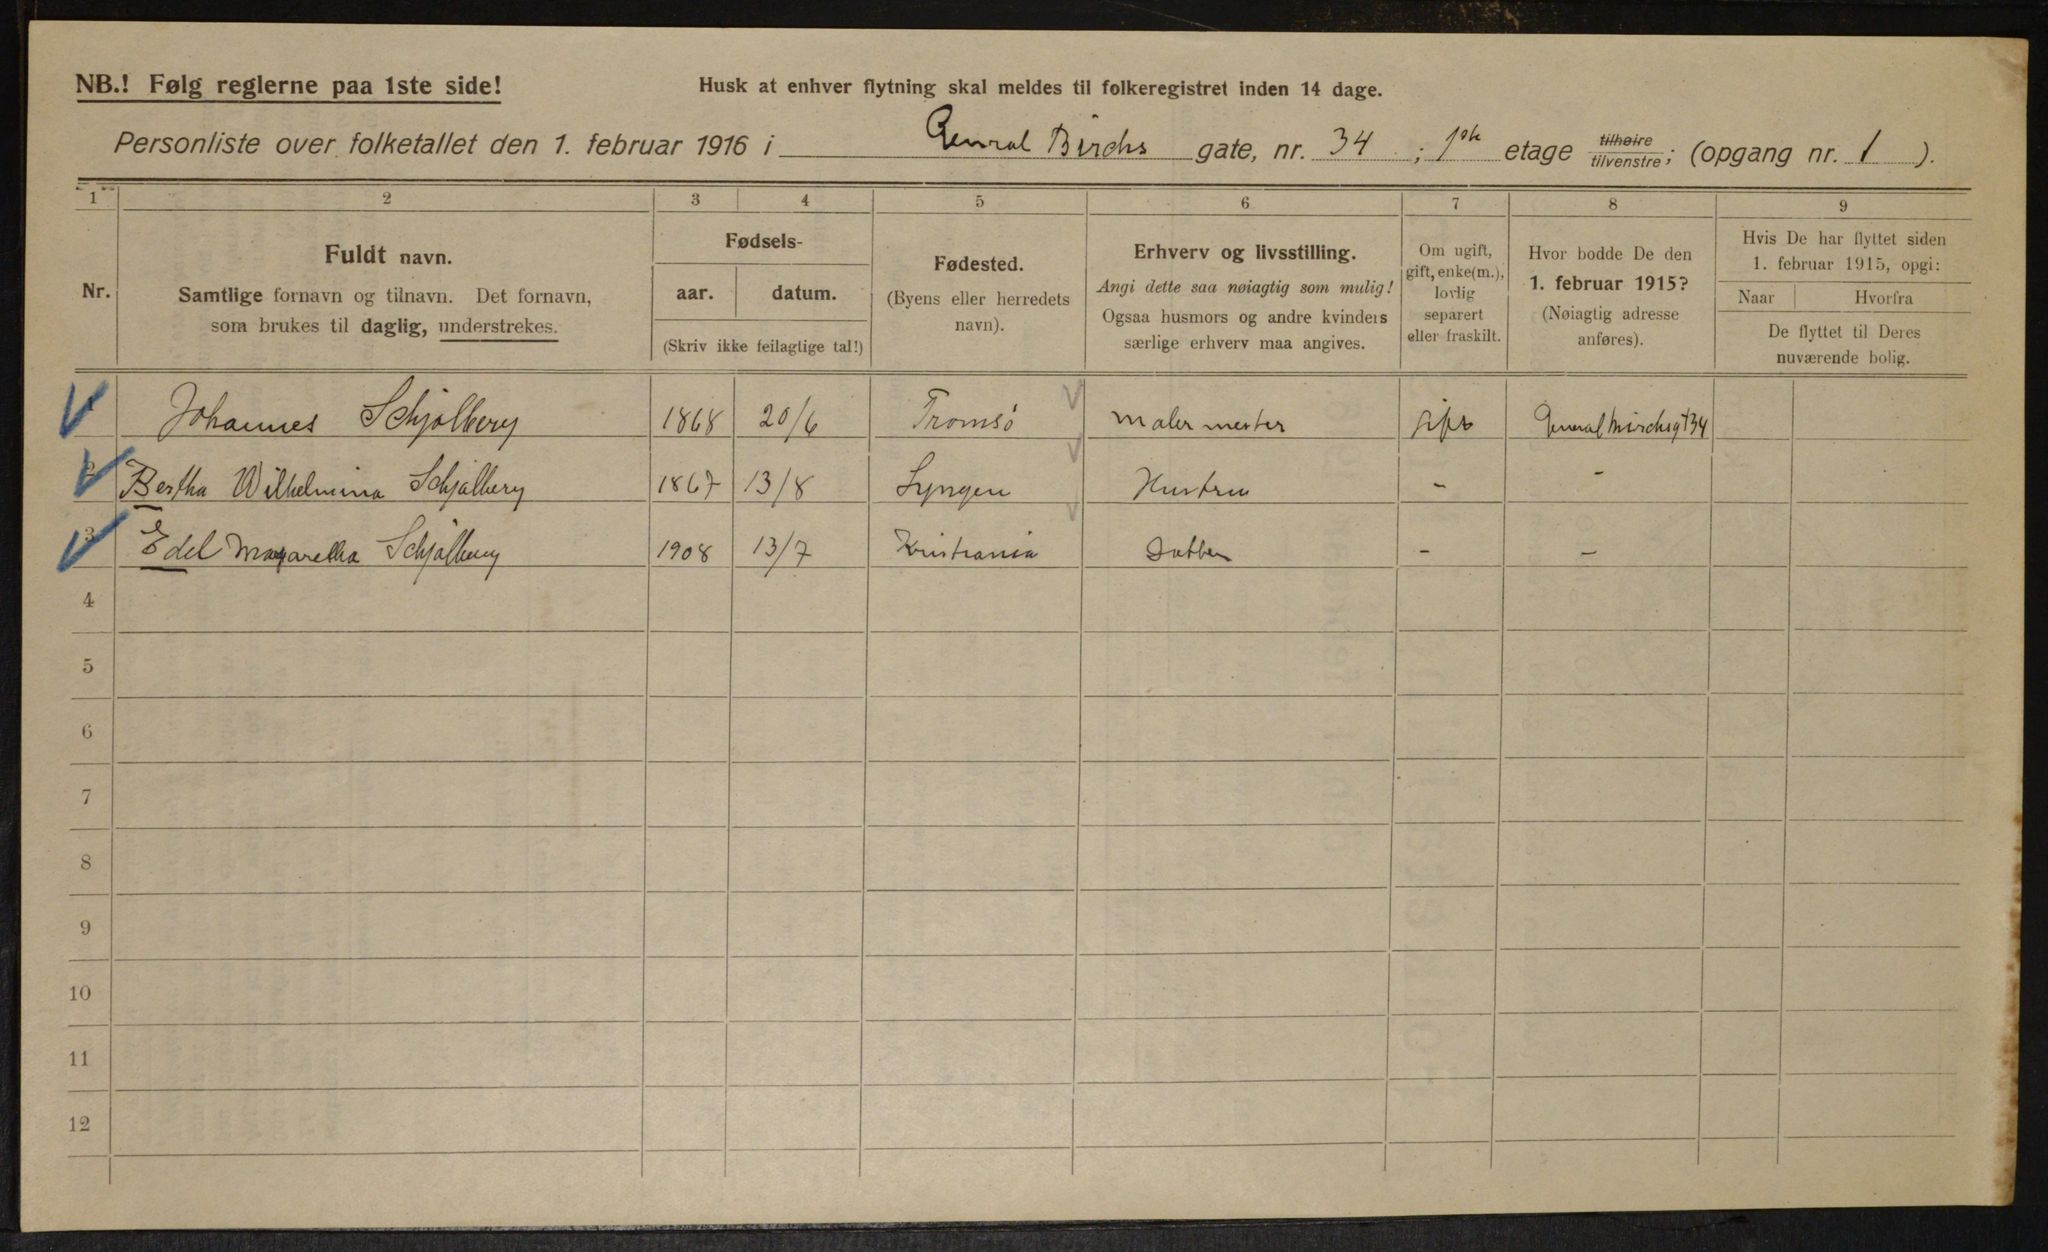 NB.! Følg reglerne paa 1ste side!
Husk at enhver flytning skal meldes til folkeregistret inden 14 dage.
Personliste over folketallet den 1. februar 1916 i General Birchs gate, nr. 34 ; 1ste etage tilhøire/tilvenstre; (opgang nr. 1 ).
1 2 3 4 5 6 7 8 9
Nr.
Fuldt navn.
Samtlige fornavn og tilnavn. Det fornavn,
som brukes til daglig, understrekes.
Fødsels-
aar. datum.
(Skriv ikke feilagtige tal!)
Fødested.
(Byens eller herredets
navn).
Erhverv og livsstilling.
Angi dette saa nøiagtig som mulig!
Ogsaa husmors og andre kvinders
særlige erhverv maa angives.
Om ugift,
gift, enke(m.),
lovlig
separert
eller fraskilt.
Hvor bodde De den
1. februar 1915?
(Nøiagtig adresse
anføres).
Hvis De har flyttet siden
1. februar 1915, opgi:
Naar Hvorfra
De flyttet til Deres
nuværende bolig.
1 Johannes Schjølberg 1868 20/6 Tromsö Malermester gift General Birchsgt 34
2 Bertha Wilhelmina Schjølberg 1867 13/8 Lyngen Hustru - -
3 Edel Margaretha Schjølberg 1908 13/7 Kristiania Datter - -
4
5
6
7
8
9
10
11
12